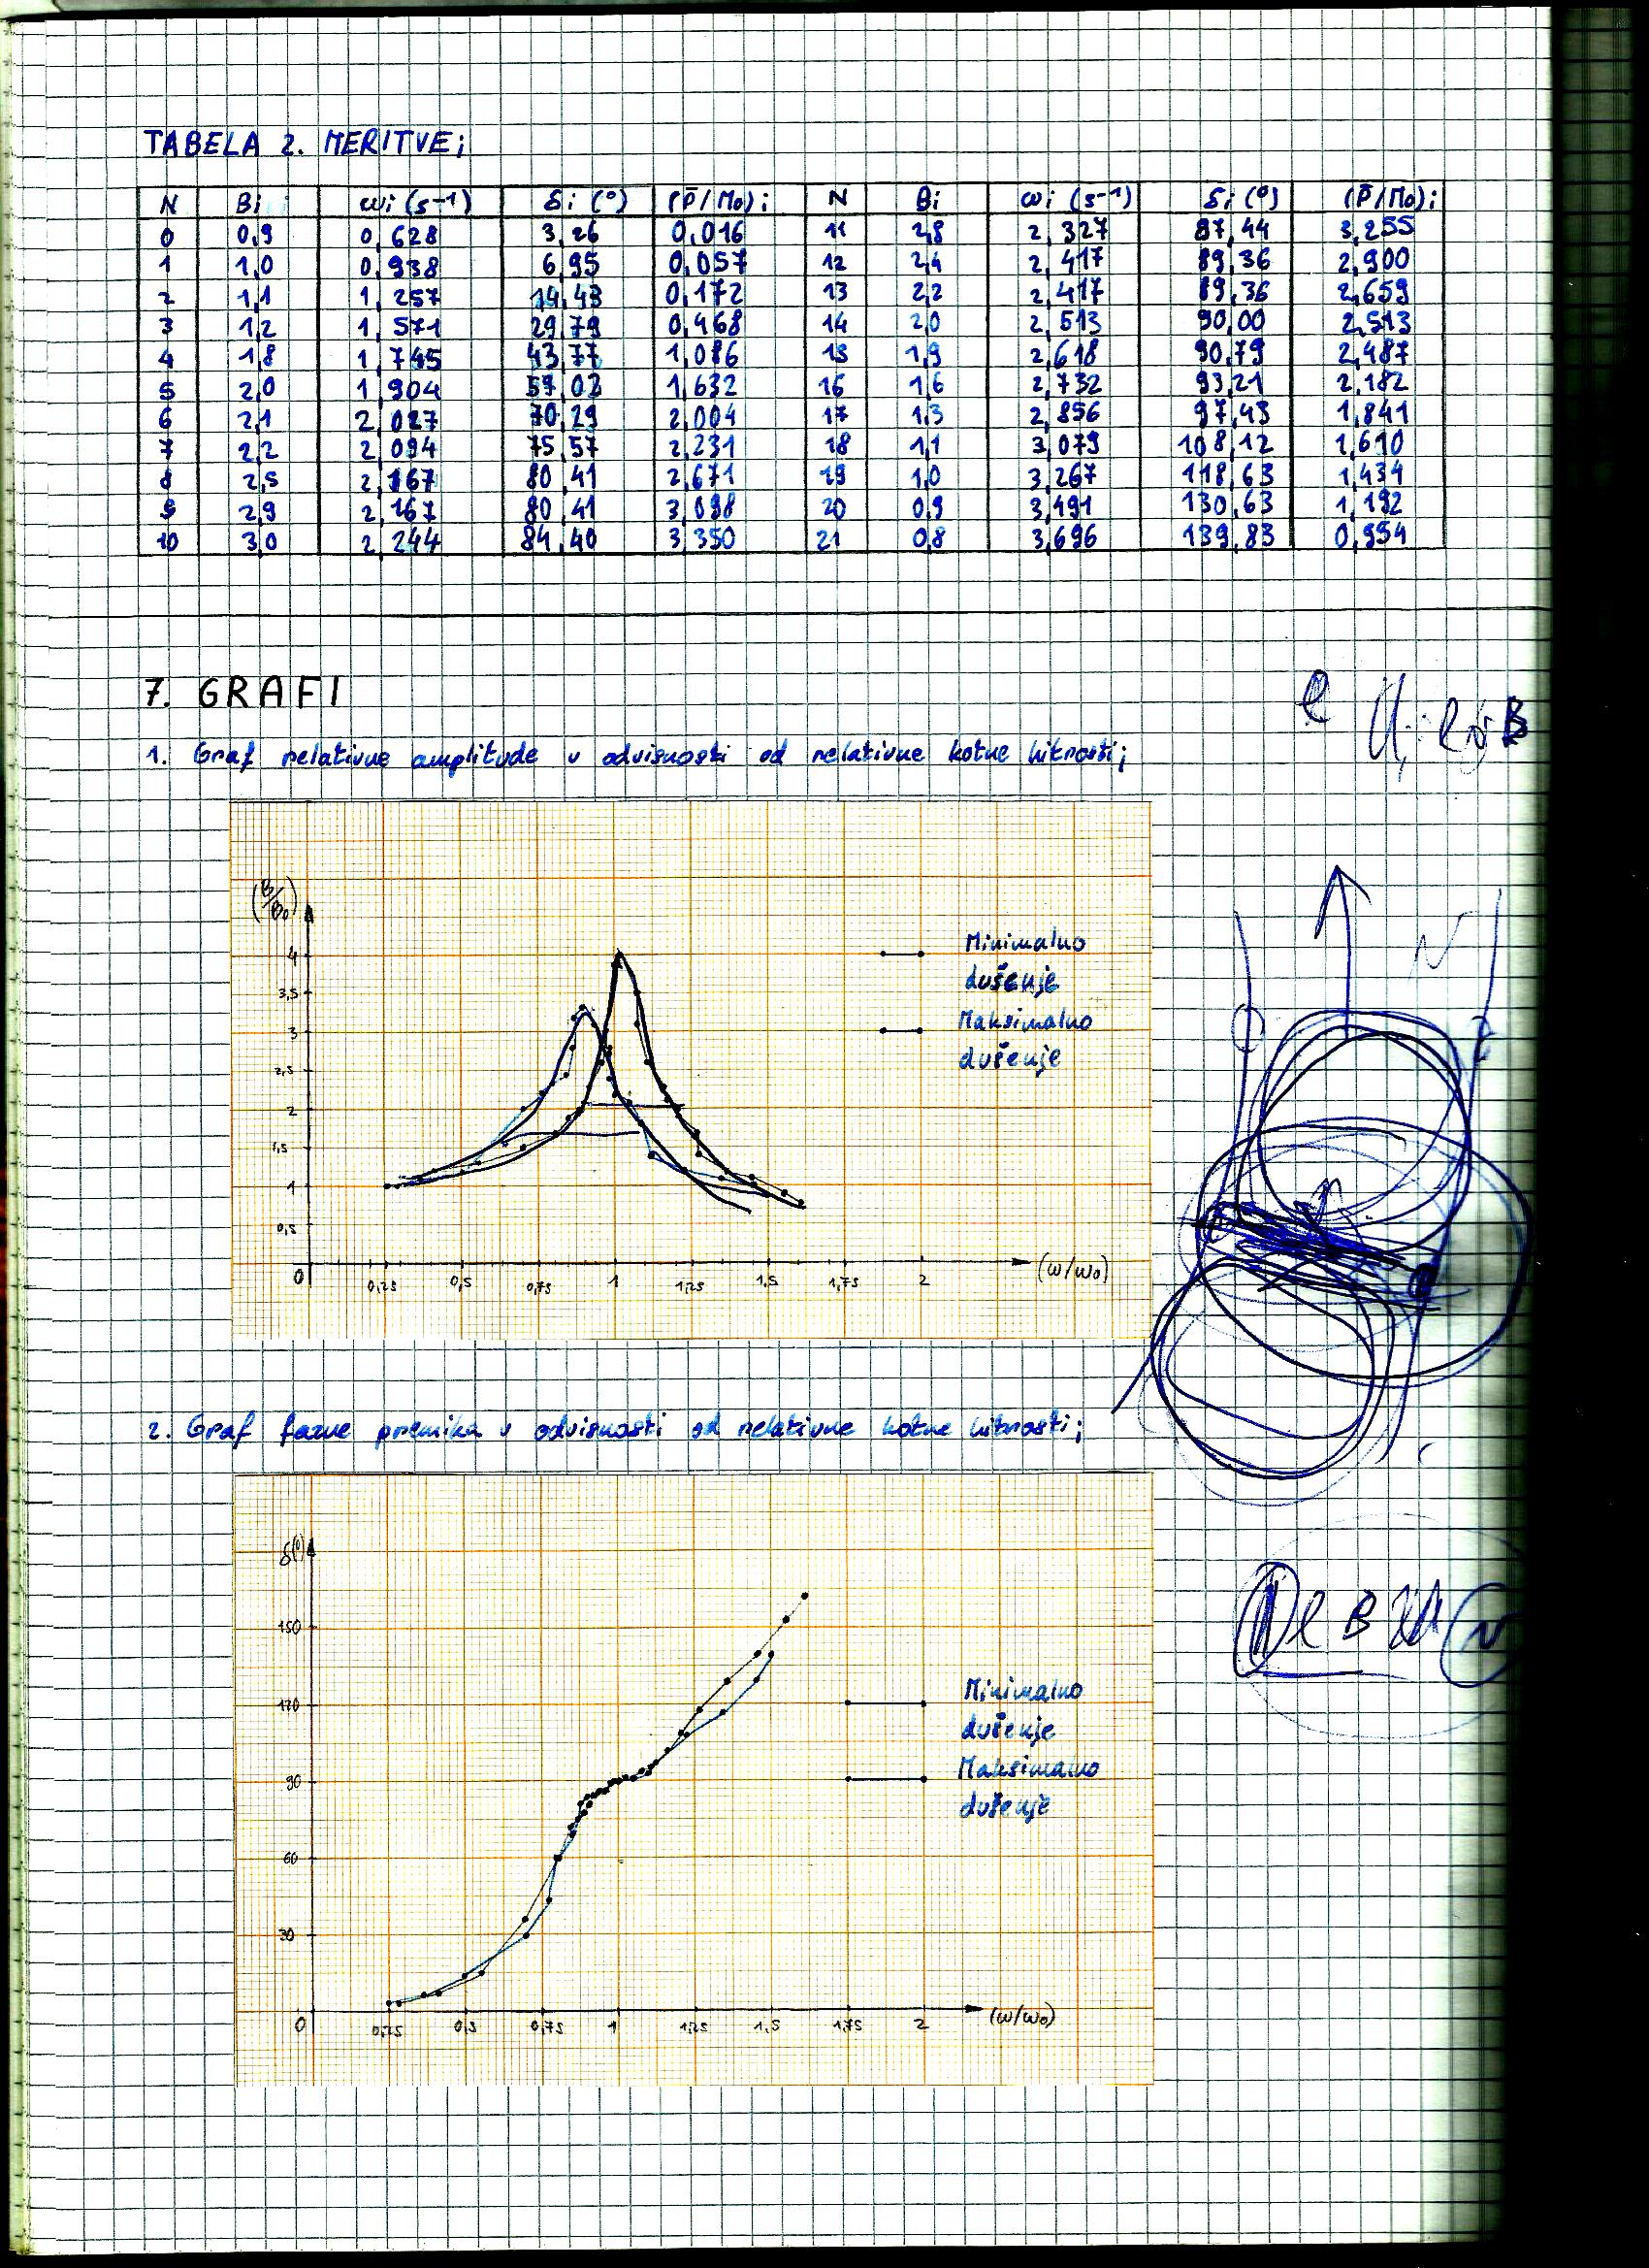 TABELA 2. MERITVE;
N Bi ωi (s⁻¹) δi (°) (P̄/M₀)i N Bi ωi (s⁻¹) δi (°) (P̄/M₀)i
0 0,9 0,628 3,26 0,016 11 2,8 2,327 87,44 3,255
1 1,0 0,938 6,95 0,057 12 2,4 2,417 89,36 2,900
2 1,1 1,257 14,43 0,172 13 2,2 2,417 89,36 2,659
3 1,2 1,571 29,79 0,468 14 2,0 2,513 90,00 2,513
4 1,8 1,745 43,77 1,086 15 1,9 2,618 90,79 2,487
5 2,0 1,904 59,02 1,632 16 1,6 2,732 93,21 2,182
6 2,1 2,027 70,29 2,004 17 1,3 2,856 97,43 1,841
7 2,2 2,094 75,57 2,231 18 1,1 3,079 108,12 1,610
8 2,5 2,167 80,41 2,671 19 1,0 3,267 118,63 1,434
9 2,9 2,167 80,41 3,098 20 0,9 3,491 130,63 1,192
10 3,0 2,244 84,40 3,350 21 0,8 3,696 139,83 0,954
7. GRAFI
1. Graf relativne amplitude v odvisnosti od relativne kotne hitrosti;
(B/B₀)
4
3,5
3
2,5
2
1,5
1
0,5
0 0,25 0,5 0,75 1 1,25 1,5 1,75 2 (ω/ω₀)
Minimalno
dušenje
Maksimalno
dušenje
2. Graf fazne premika v odvisnosti od relativne kotne hitrosti;
δ(°)
150
120
90
60
30
0 0,25 0,5 0,75 1 1,25 1,5 1,75 2 (ω/ω₀)
Minimalno
dušenje
Maksimalno
dušenje